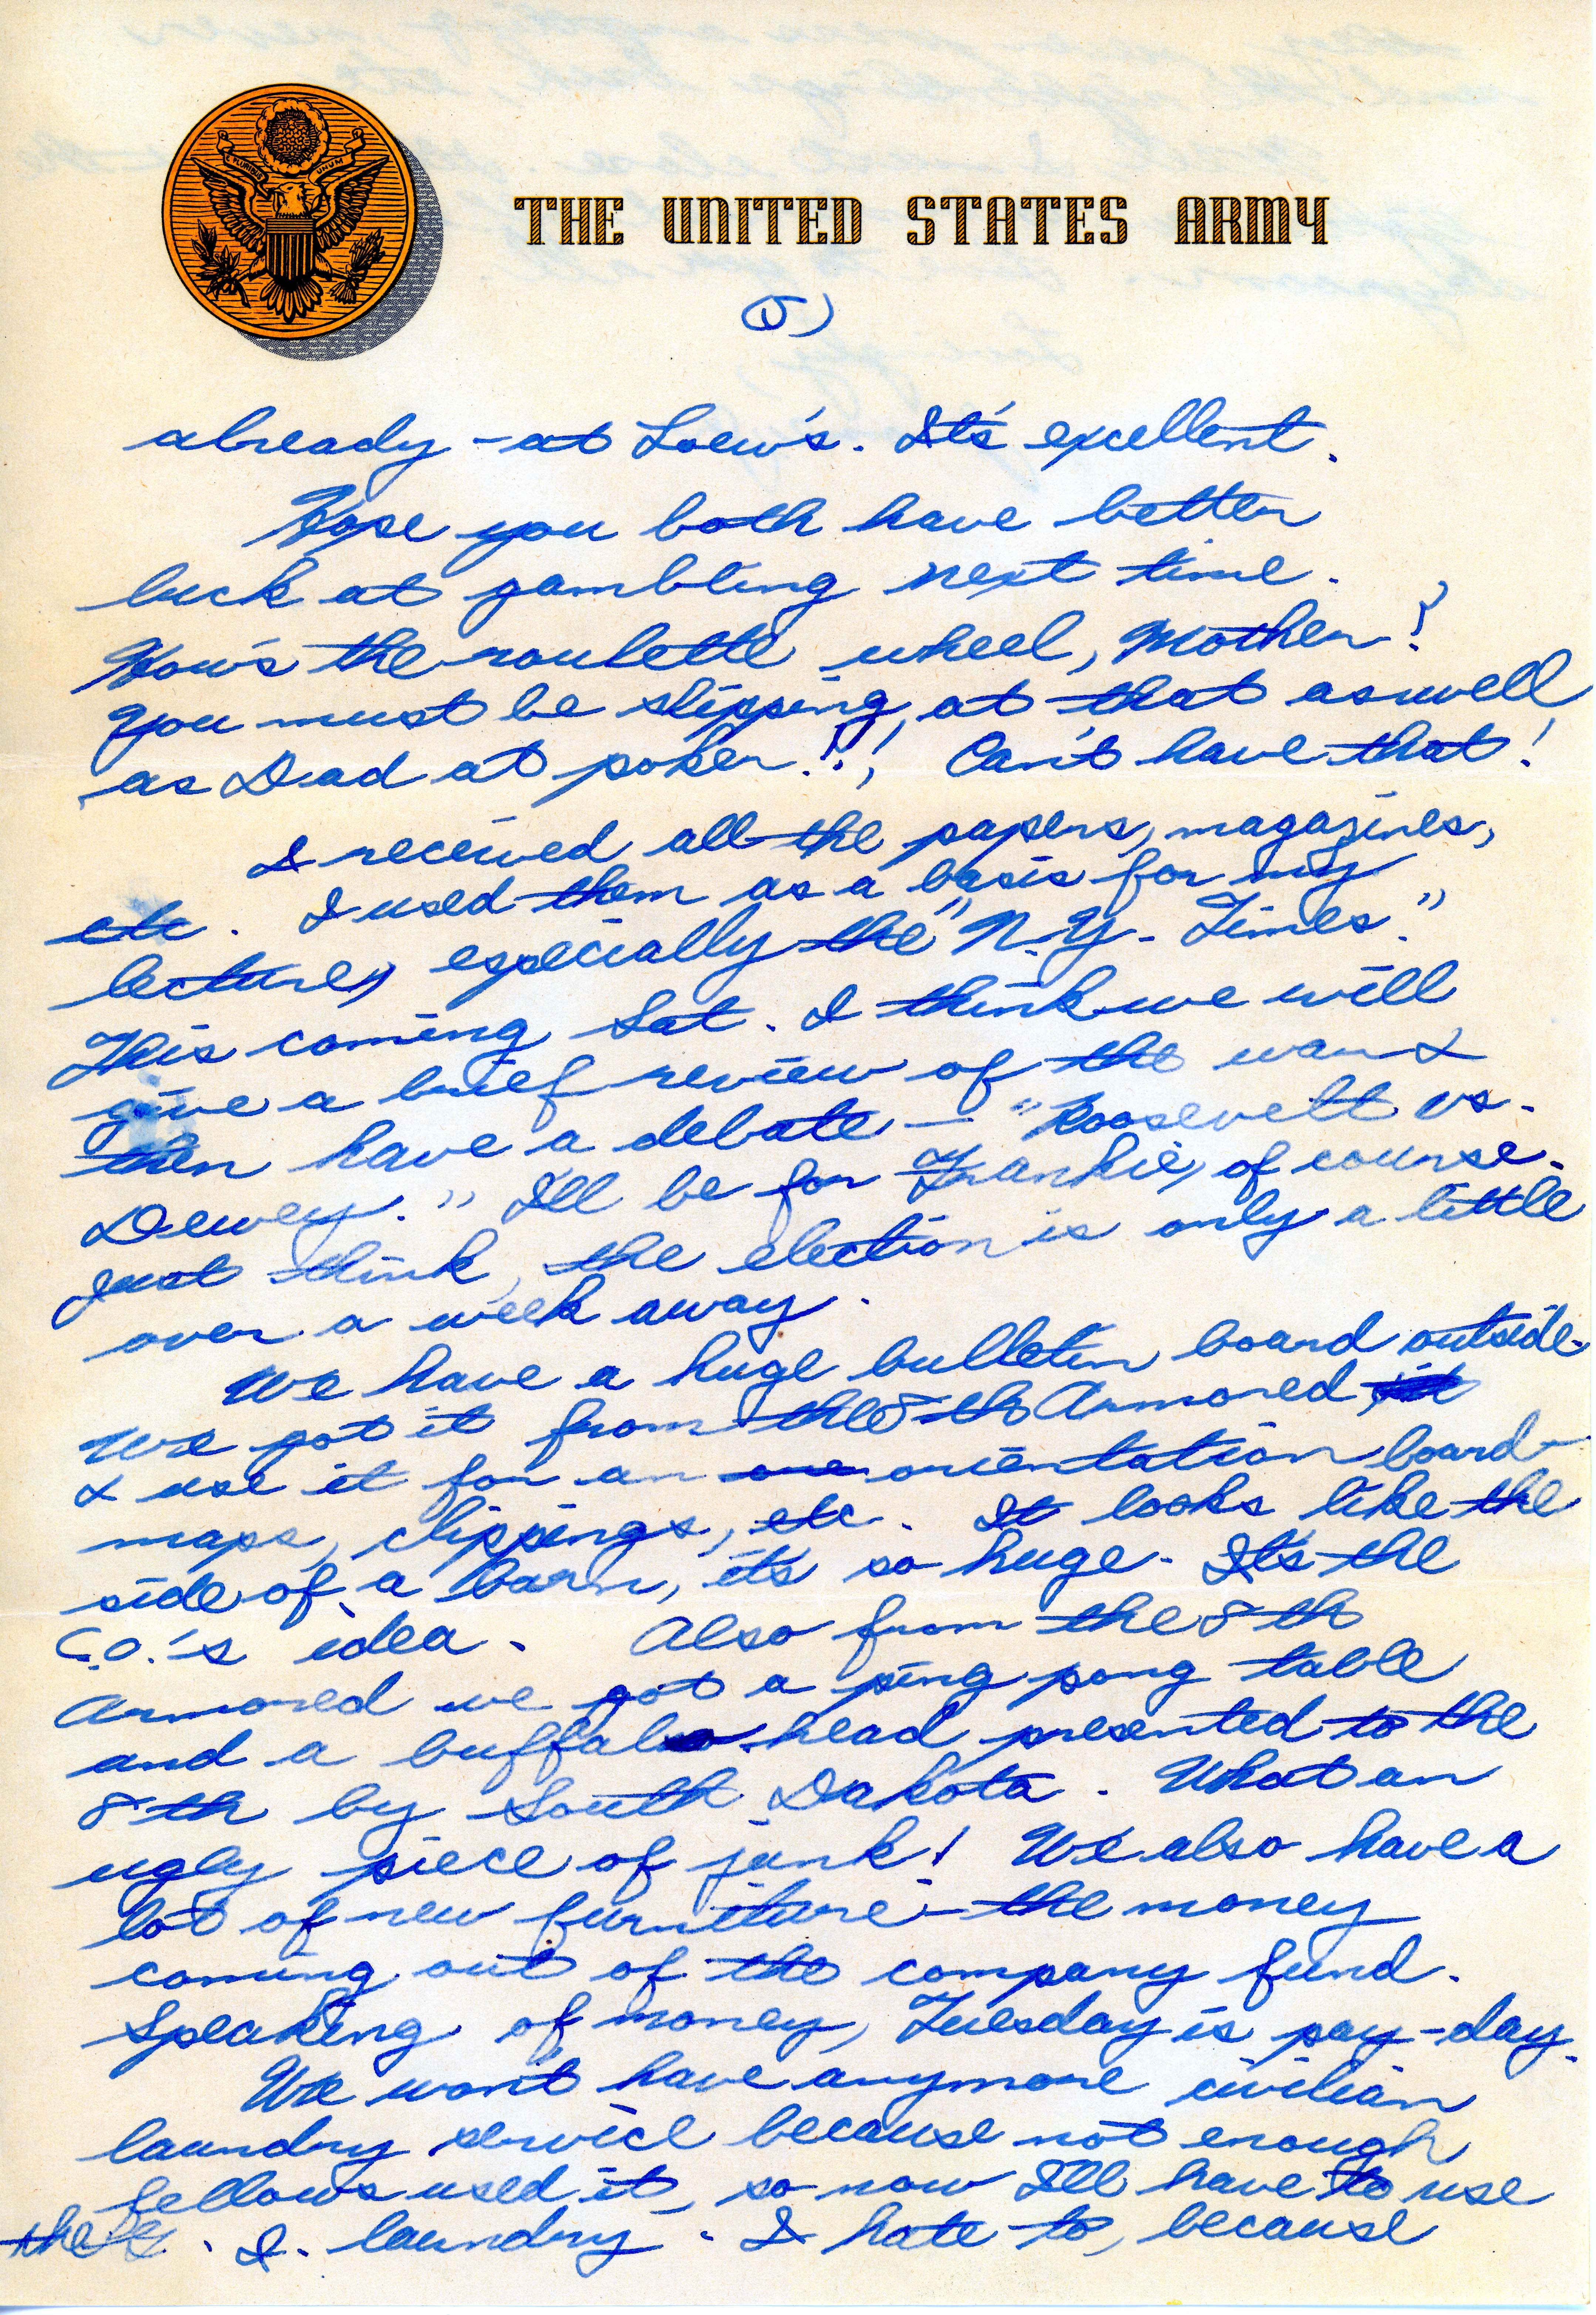 E PLURIBUS UNUM
THE UNITED STATES ARMY
(5)
already - at Loew's. It's excellent.
Hope you both have better
luck at gambling next time.
How's the roulette wheel, Mother?
You must be slipping at that as well
as Dad at poker!!! Can't have that!
I received all the papers, magazines,
etc. I used them as a basis for my
lectures, especially the "N.Y. Times."
This coming Sat. I think we will
give a brief review of the war &
then have a debate — "Roosevelt vs.
Dewey." I'll be for Frankie, of course.
Just think, the election is only a little
over a week away.
We have a huge bulletin board outside.
We got it from the 8th Armored
& use it for an orientation board -
maps, clippings, etc. It looks like the
side of a barn, it's so huge. It's the
C.O.'s idea. Also from the 8th
Armored we got a ping pong table
and a buffalo head presented to the
8th by South Dakota. What an
ugly piece of junk! We also have a
lot of new furniture - the money
coming out of the company fund.
Speaking of money, Tuesday is pay-day.
We won't have anymore civilian
laundry service because not enough
fellows used it, so now I'll have to use
the G.I. laundry. I hate to, because